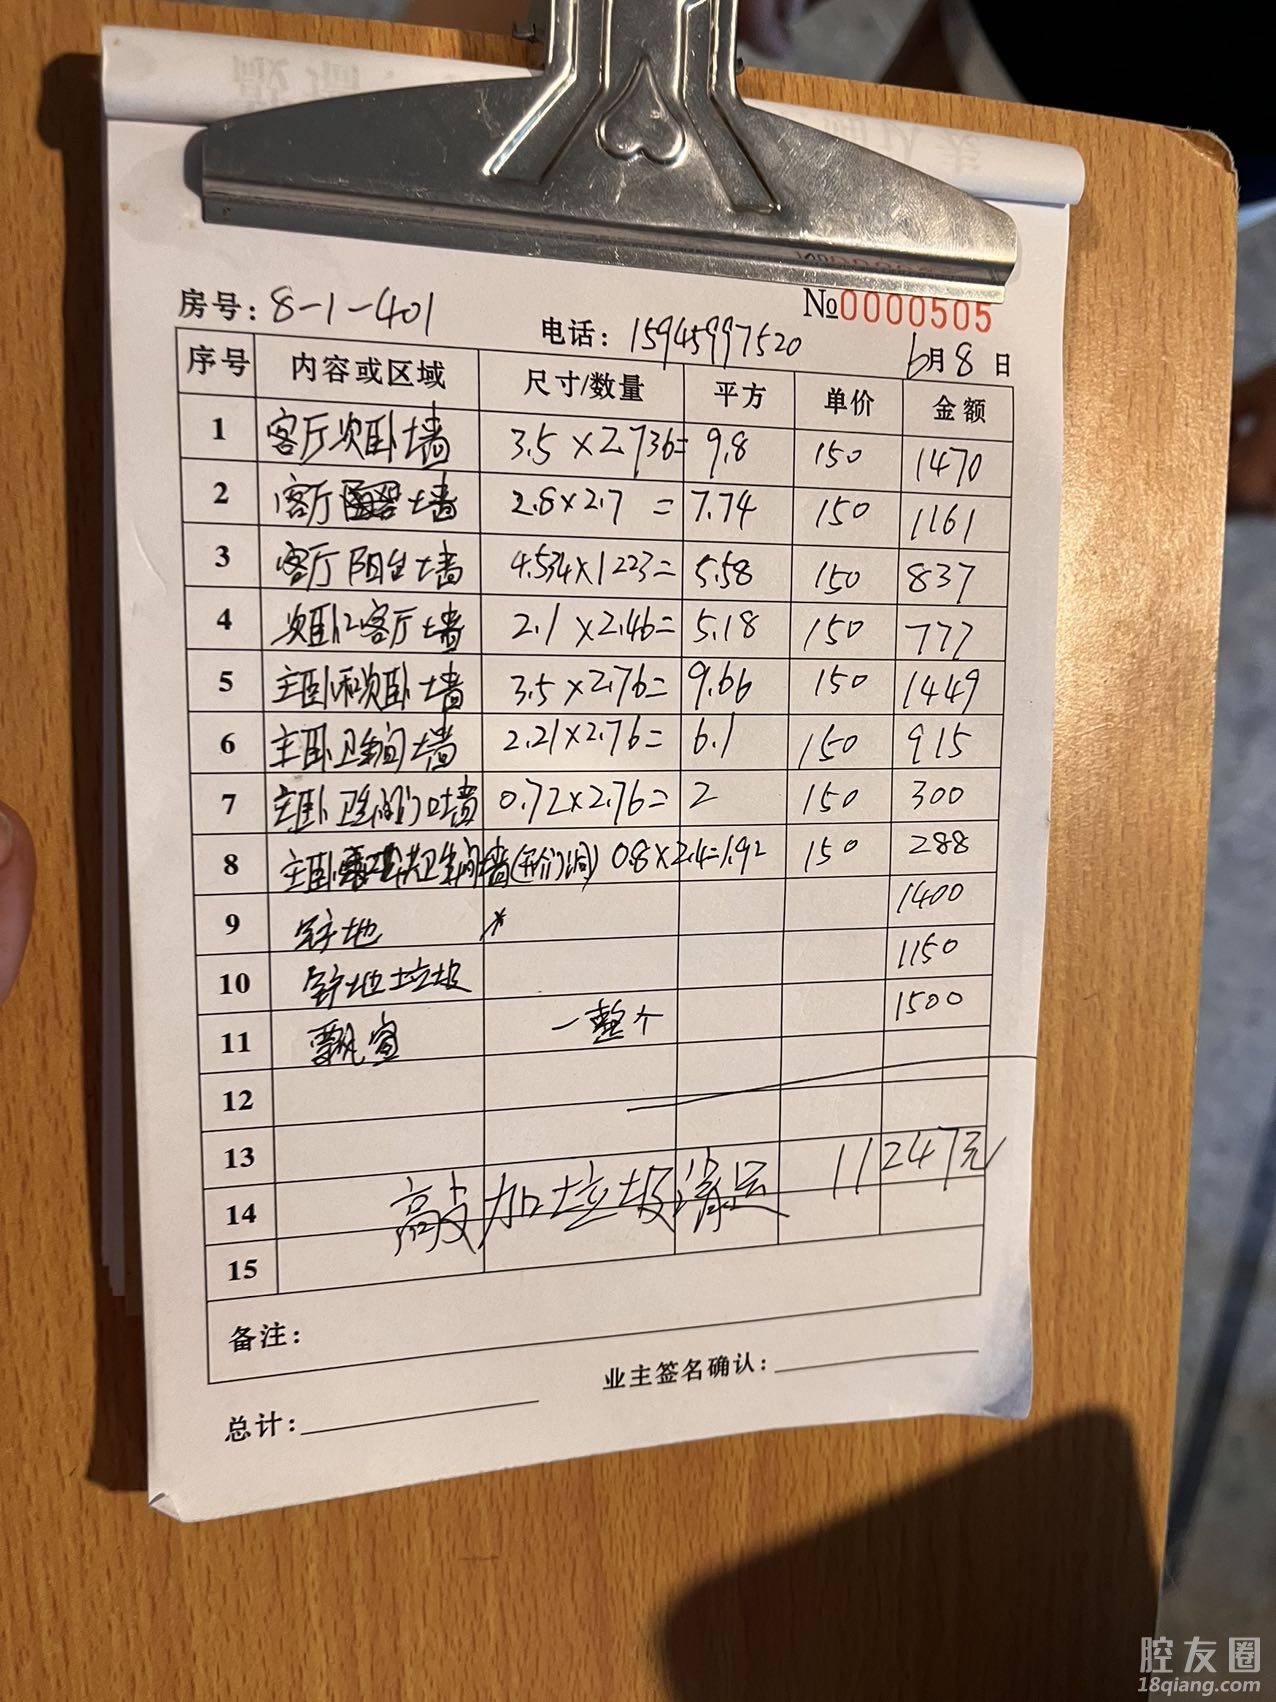 房号：8-1-401
电话：15945997520
№0000505
6月8日
序号 内容或区域 尺寸/数量 平方 单价 金额
1 客厅次卧墙 3.5×2.736= 9.8 150 1470
2 客厅 墙 2.8×2.7= 7.74 150 1161
3 客厅阳台墙 4.534×1223= 5.58 150 837
4 次卧客厅墙 2.1×2.46= 5.18 150 777
5 主卧和次卧墙 3.5×2.76= 9.66 150 1449
6 主卧卫生间墙 2.21×2.76= 6.1 150 915
7 主卧卫生间门口墙 0.72×2.76= 2 150 300
8 主卧 卫生间墙(开门洞) 0.8×2.4=1.92 150 288
9 地 1400
10 地垃圾 1150
11 飘窗 一整个 1500
12
13
敲加垃圾清运 11247元
14
15
备注：
业主签名确认：
总计：
腔友圈
18qiang.com